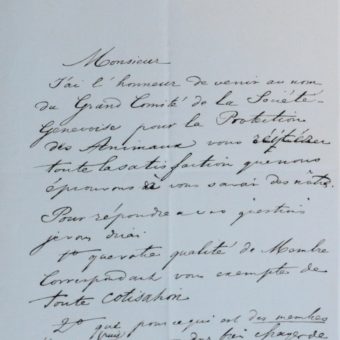 Monsieur
J'ai l'honneur de venir au nom
du Grand Comité de la Société
Genevoise pour la Protection
des Animaux vous répéter
toute la satisfaction que nous
éprouvons vous savoir des nôtres.
Pour répondre a vos questions
je vous dirai
1° que votre qualité de Membre
Correspondant vous exemptes de
toute cotisation
2° que pour ce qui est des membres